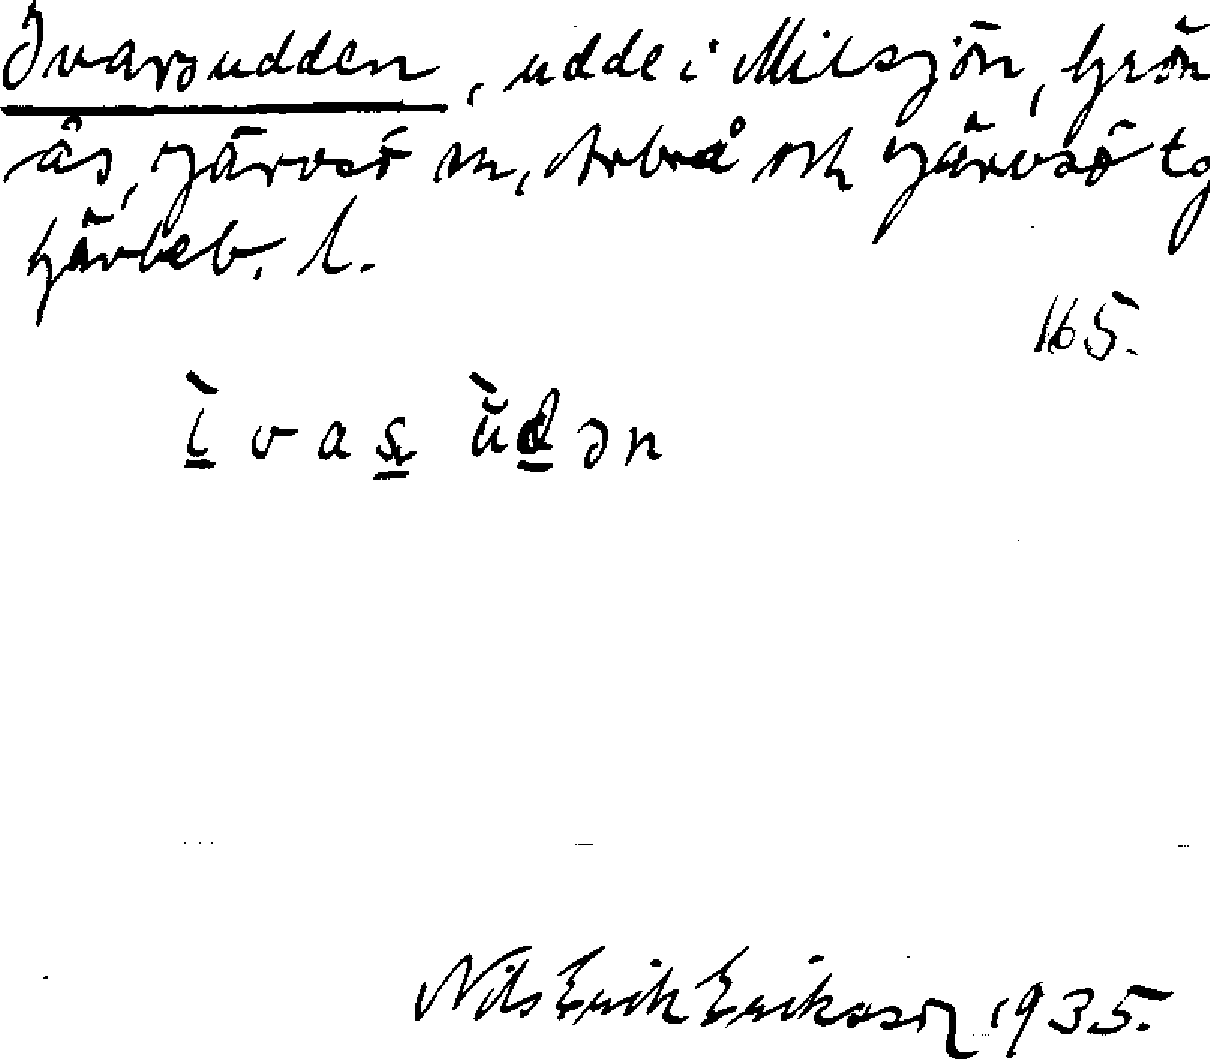 Ivarsudden, udde i Milsjön, Grön
ås, Järvsö sn, Arbrå och Järvsö tg
Gävleb. l.
165.
ìvaş ùḍən
Nils Erik Eriksson, 1935.